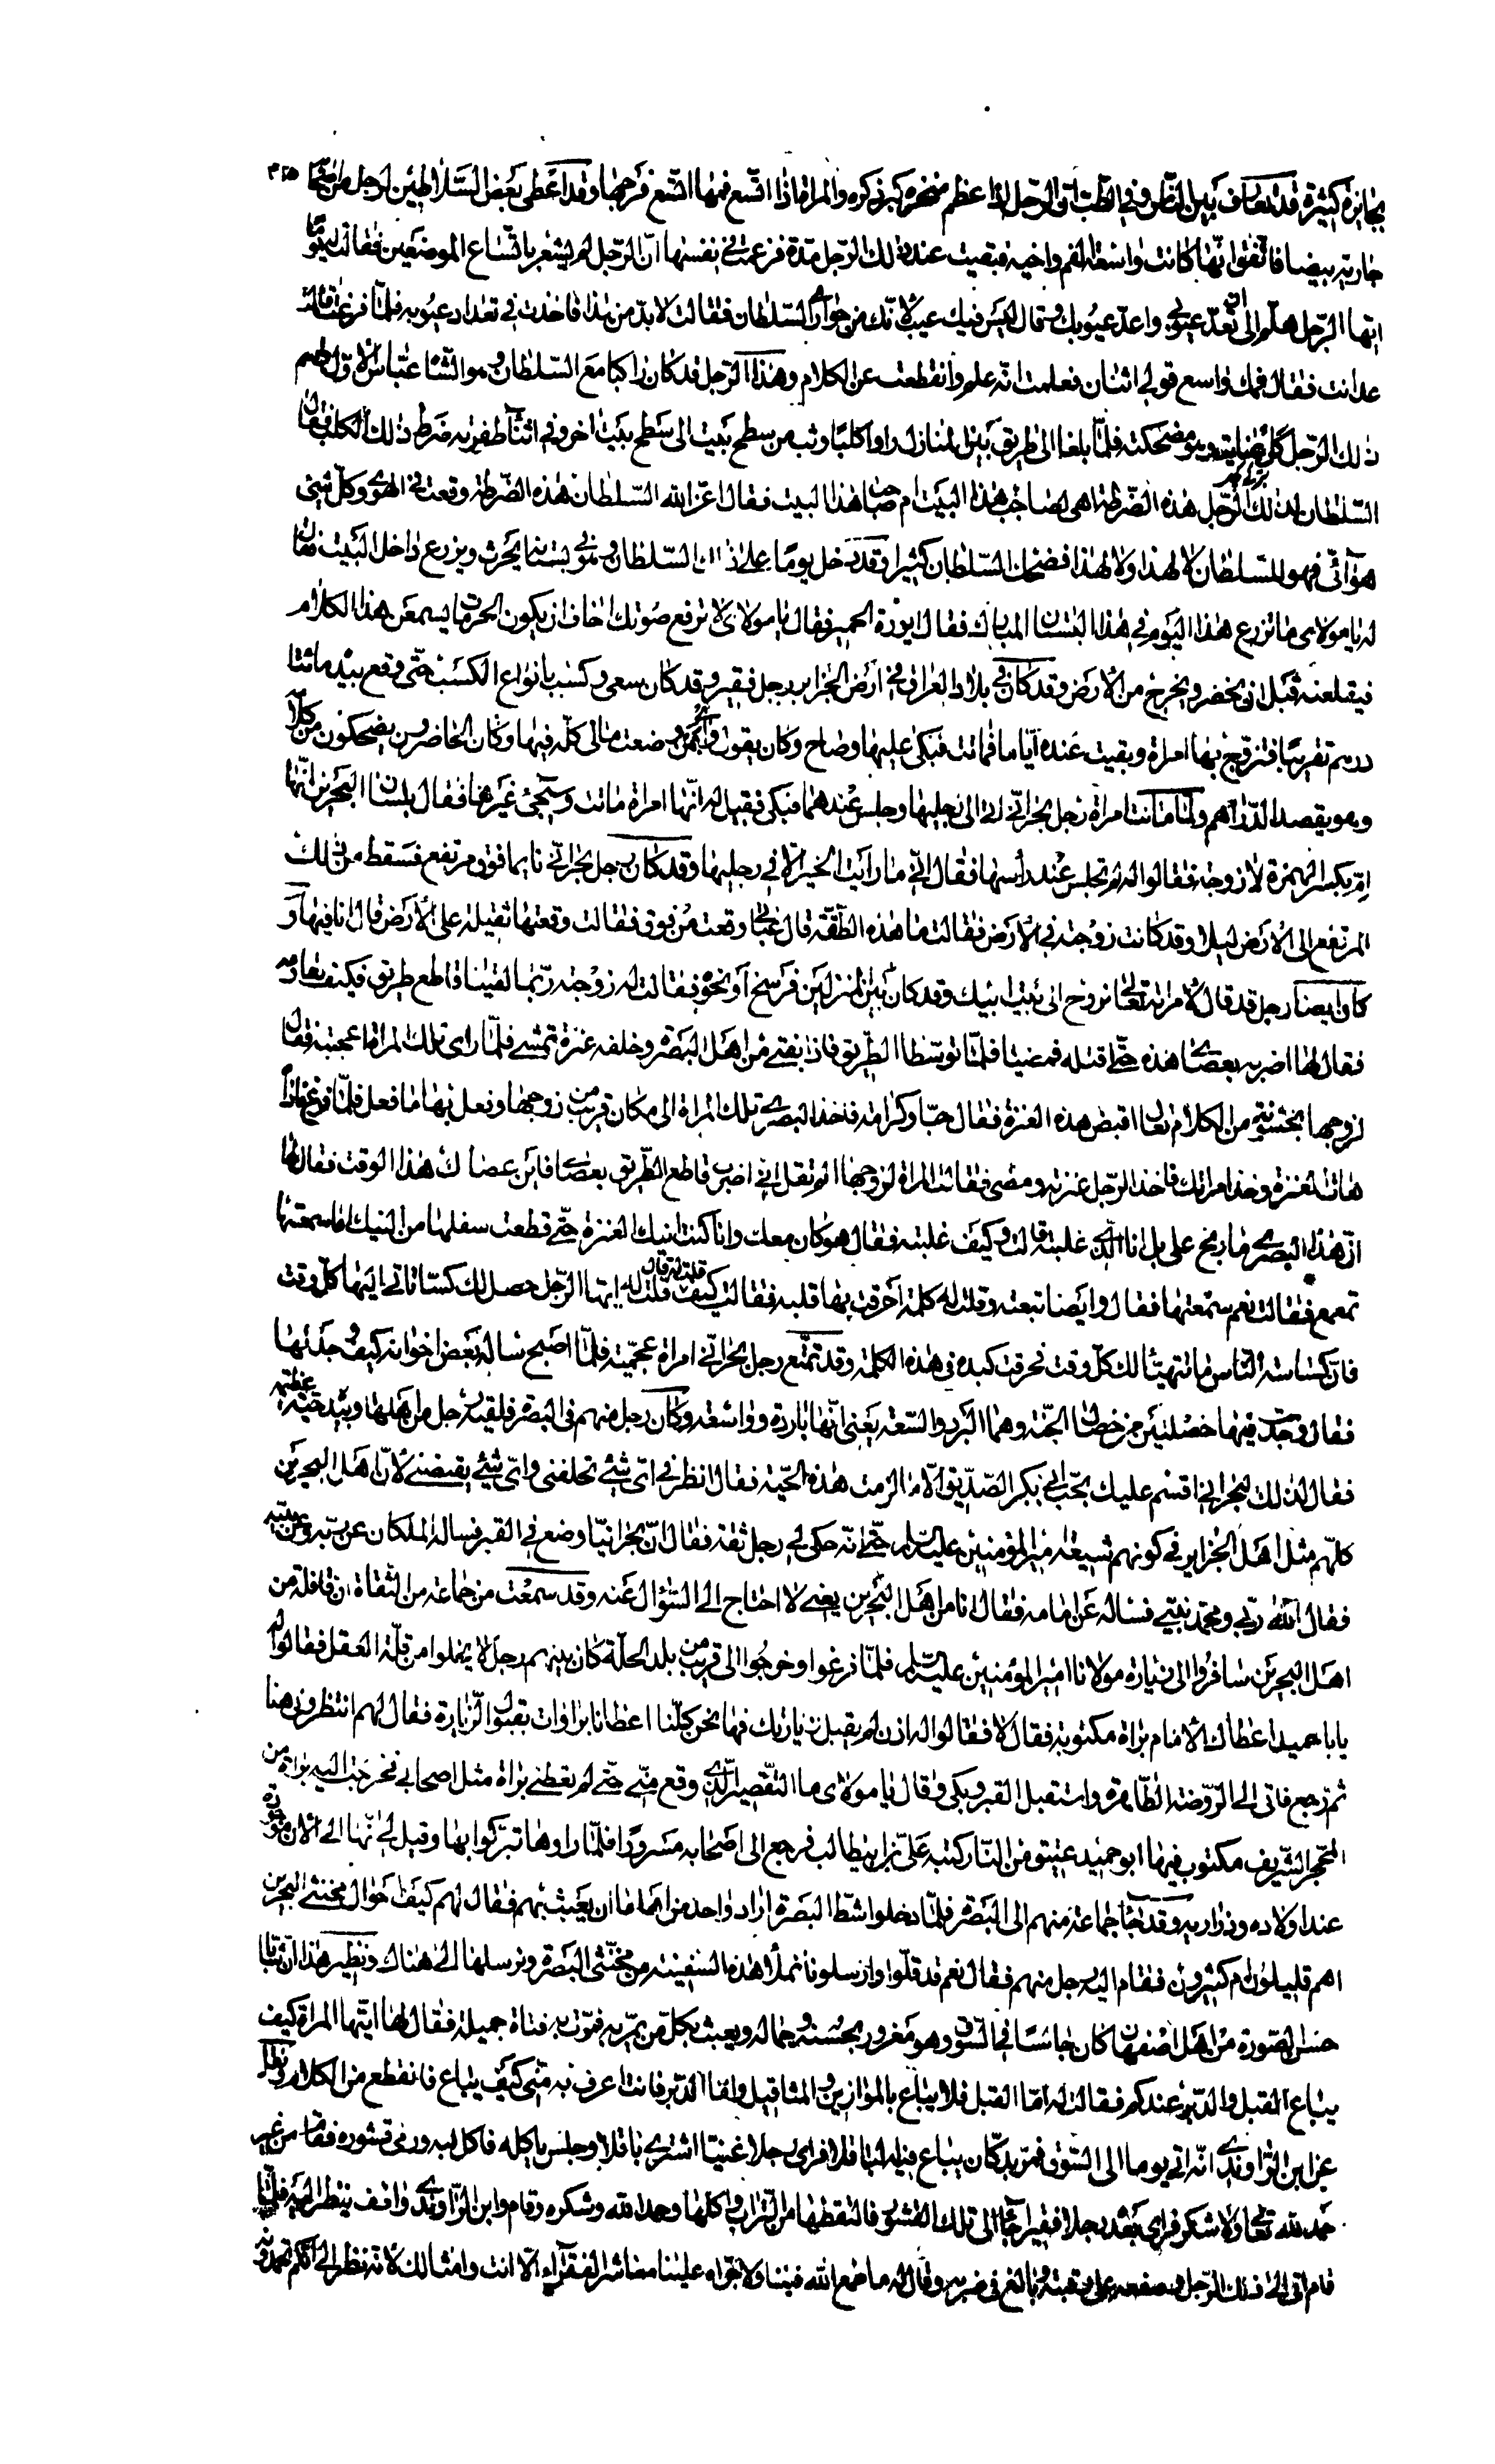 بجايزة كثيرة قد تعارف بين الناس وفي الطب ان الرجل اذا عظم منخره كبر ذكره والمراة اذا اتسع فمها اتسع فرجها وقد اعطى بعض السلاطين لرجل من ٣٢٥
جارية بيضا فاتفق انها كانت واسعة الفم واخيه فبقيت عند ذلك الرجل مدة فزعمت في نفسها ان الرجل لم يشعر باتساع الموضعين فقالت له يوما
ايها الرجل هلم الى ان تعد عيوبي واعد عيوبك فقال ليس فيك عيب لانك من جواري السلطان فقالت لا بد من هذا فاخذت في تعداد عيوبه فلما فرغت قالت
عد انت فقال فمك واسع قولي اثنان فعلمت انه علم وانقطعت عن الكلام وهذا الرجل قد كان راكبا مع السلطان وهو الشاه عباس الاول
ذلك الرجل كل عنايت وهو مضحكته فلما بلغا الى طريق بين المنازل راوا كلبا وثب من سطح بيت الى سطح بيت اخر وفي اثنا طفرته ضرط ذلك الكلب فقال
السلطان لذلك الرجل هذه الضرطة اهي لصاحب هذا البيت ام صاحب هذا البيت فقال اعز الله السلطان هذه الضرطة وقعت في الهوى وكل شيئ
هوائي فهو للسلطان لا لهذا ولا لهذا فضحك السلطان كثيرا وقد دخل يوما على السلطان وهو في بستانه يحرث ويزرع داخل البيت فقال
له يا مولاي ما تزرع هذا اليوم في هذا البستان المبارك فقال ايورة الحمير فقال يا مولاي لا ترفع صوتك اخاف ان يكون الحرمات يسمعن هذا الكلام
فيقلعنه قبل ان يخضر ويخرج من الارض وقد كان في بلاد العراق في ارض الجزاير رجل فقير وقد كان سعى وكسب بانواع الكسب حتى وقع بيده مائتا
درهم تقريبا فتزوج بها امراة وبقيت عنده اياما فماتت فبكى عليها وصاح وكان يقول وضعت مالي كله فيها وكان الحاضرون يضحكون من كلامه
وهو يقصد الدراهم ولما ماتت امراة رجل بحراني اتى الى رجليها وجلس عندهما فبكى فقيل له انها امراة ماتت وستجئ غيرها فقال بلسان البحرين انها
ام بكسر الهمزة لا زوجة فقالوا له لم تجلس عند رأسها فقال اني ما رايت الخير الا في رجليها وقد كان رجل بحراني نايما فوق مرتفع فسقط من ذلك
المرتفع الى الارض ليلا وقد كانت زوجته في الارض فقالت ما هذه الطقة قال عبائي وقعت من فوق فقالت وقعتها ثقيلة على الارض قال انا فيها و
كان ايضا رجل قد قال لامراته تعالي نروح الى بيت ابيك وقد كان بين المنزلين فرسخ او نحوه فقالت له زوجته ربما لقينا قاطع طريق فكيف
فقال لها اضربه بعصاي هذه حتى اقتله فمضيا فلما توسطا الطريق فاذا بفتى من اهل البصرة وخلفه عنزة تمشي فلما راى تلك المراة اعجبته فقال
لزوجها بخشونة من الكلام تعال اقبض هذه العنزة فقال حبا وكرامة فاخذ البصري تلك المراة الى مكان قريب من زوجها وفعل بها ما فعل فلما فرغ
هات العنزة وخذ امراتك فاخذ الرجل عنزته ومضى فقالت المراة لزوجها الم تقل اني اضرب قاطع الطريق بعصاي فاين عصاك هذا الوقت فقال لها
ان هذا البصري ما ربح علي بل انا الذي غلبته قالت وكيف غلبته فقال هو كان معك وانا كنت انيك العنزة حتى قطعت سفلها من النيك اما سمعتها
تمعمع فقالت نعم سمعتها فقال وايضا تبعته وقلت له كلمة احرقت بها قلبه فقالت كيف قلت له قال قلت له ايها الرجل حصل لك كسا تاتي اليها كل وقت
فان كساسة الناس ما تتهيئا لك كل وقت فحرقت كبده في هذه الكلمة وقد تمتع رجل بحراني امراة عجمية فلما اصبح ساله بعض اخوانه كيف وجدتها
فقال وجدت فيها خصلتين من خصال الجنة وهما البرد والسعة يعني انها باردة وواسعة وكان رجل منهم في البصرة فلقيه رجل من اهلها وبيده حية عظيمة
فقال لذلك البحراني اقسم عليك بحب ابي بكر الصديق الا ما لزمت هذه الحية فقال انظر في اي شئ تحلفني واي شئ يقبضني لان اهل البحرين
كلهم مثل اهل الجزاير في كونهم شيعة امير المؤمنين عليه السلام حتى انه حكى لي رجل ثقة فقال ان بحرانيا وضع في القبر فساله الملكان عن ربه وعن نبيه
فقال الله ربي ومحمد نبيي فساله عن امامه فقال انا من اهل البحرين يعني لا احتاج الى السؤال عنه وقد سمعت من جماعة من الثقاة ان قافلة من
اهل البحرين سافروا الى زيارة مولانا امير المؤمنين عليه السلام فلما فرغوا وخرجوا الى قريب من بلد الحلة كان بينهم رجل لا يخلوا من قلة العقل فقالوا له
يا با حميد اعطاك الامام براة مكتوبة فقال لا فقالوا له اذن لم يقبل زيارتك فها نحن كلنا اعطانا براوات بقبول الزيارة فقال لهم انتظروني هنا
ثم رجع فاتى الى الروضة الطاهرة واستقبل القبر وبكى وقال يا مولاي ما التقصير الذي وقع مني حتى لم تعطني براة مثل اصحابي فخرجت اليه براة من
المحجر الشريف مكتوب فيها ابو حميد عتيق من النار كتبه علي بن ابيطالب فرجع الى اصحابه مسرورا فلما راوها تبركوا بها وقيل لي انها الى الان موجودة
عند اولاده وذراريه وقد جاء جماعة منهم الى البصرة فلما دخلوا شط البصرة اراد واحد من اهلها ان يعبث بهم فقال لهم كيف احوال مخنثي البحرين
اهم قليلون ام كثيرون فقام اليه رجل منهم فقال نعم قد قلوا وارسلونا نملأ هذه السفينة من مخنثي البصرة ونرسلها الى هناك ونظير هذا ان شابا
حسن الصورة من اهل اصفهان كان جالسا في السوق وهو مغرور بحسنه وجماله ويعبث بكل من يمر به فمرت به فتاة جميلة فقال لها ايتها المراة كيف
يباع القبل والدبر عندكم فقالت له اما القبل فلا يباع بالموازين والمثاقيل واما الدبر فانت اعرف به مني كيف يباع فانقطع من الكلام ونقل
عن ابن الراوندي انه اتى يوما الى السوق فمر بدكان يباع فيه الباقلا فراى رجلا غنيا اشترى باقلا وجلس ياكله فاكل لبه ورمى قشوره فقام من غير
حمد لله تعالى ولا شكر فراى بعده رجلا فقيرا جاء الى تلك القشور فالتقطها من التراب واكلها وحمد الله وشكره وقام وابن الراوندي واقف ينظر اليه فلما
قام اتى الى ذلك الرجل وصفعه على رقبته وبالغ في ضربه وقال له ما ضيع الله فينا ولا علينا معاشر الفقراء الا انت وامثالك لانه نظر الى انكم تحمدونه